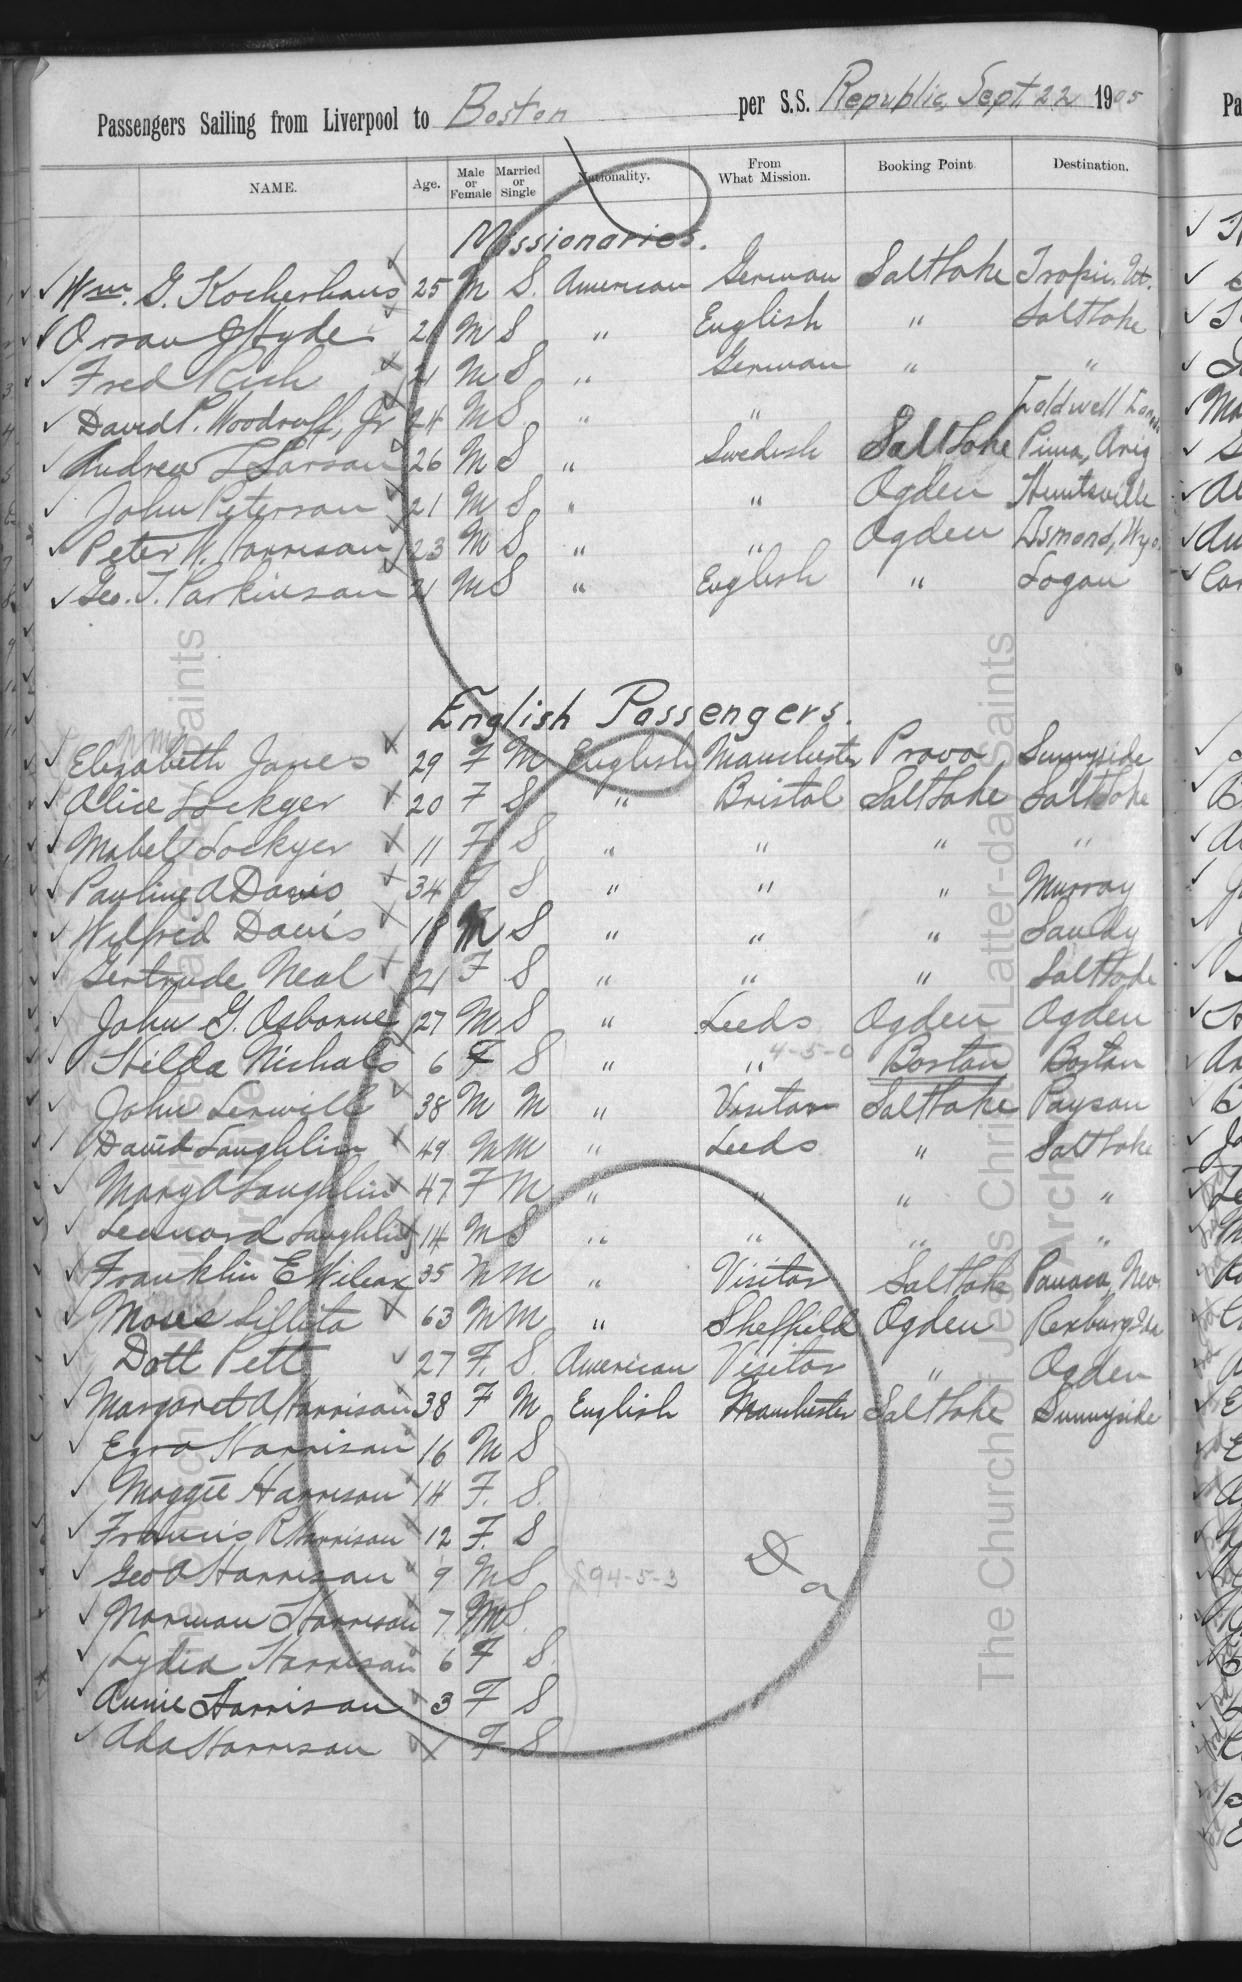 Passengers Sailing from Liverpool to Boston per S.S. Republic, Sept 22 1905
NAME. Age. Male or Female Married or Single Nationality. From What Mission. Booking Point Destination.
Missionaries.
Wm. G. Kocherhans 25 M S. American German Saltlake Tropic, Ut.
Orson J Hyde 21 M S " English " Saltlake
Fred Rich 21 M S " German " "
David P. Woodruff, Jr 24 M S " "
Andrew L Larson 26 M S " Swedish Saltlake Pima, Ariz
John Peterson 21 M S " " Ogden Huntsville
Peter W. Harrison 23 M S " " Ogden Osmond, Wyo.
Geo. T. Parkinson 21 M S " English " Logan
English Passengers.
Elizabeth Jones 29 F M English Manchester Provo Sunnyside
Alice Lockyer 20 F S " Bristol Saltlake Saltlake
Mabel Lockyer 11 F S " " " "
Pauline A Davis 34 F S " " " Murray
Wilfred Davis 18 M S " " " Sandy
Gertrude Neal 21 F S " " " Saltlake
John G. Osborne 27 M S " Leeds Ogden Ogden
4-5-0
Hilda Nichols 6 F S " " Boston Boston
John Lerwill 38 M M " Visitor Saltlake Payson
David Laughlin 49 M M " Leeds " Saltlake
Mary A Laughlin 47 F M " " " "
Leonard Laughlin 14 M S " " " "
Franklin E Wilcox 35 M M " Visitor Saltlake Panaca, Nev.
Moses Sillito 63 M M " Sheffield Ogden Rexburg Ida
Dott Pett 27 F. S. American Visitor " Ogden
Margaret A Harrison 38 F M English Manchester Saltlake Sunnyside
Ezra Harrison 16 M S
Maggie Harrison 14 F. S.
Francis R Harrison 12 F. S
Geo A Harrison 9 M S £94-5-3
Norman Harrison 7 M S.
Lydia Harrison 6 F S.
Annie Harrison 3 F S
Ada Harrison F S
The Church of Jesus Christ of Latter-day Saints
Archives